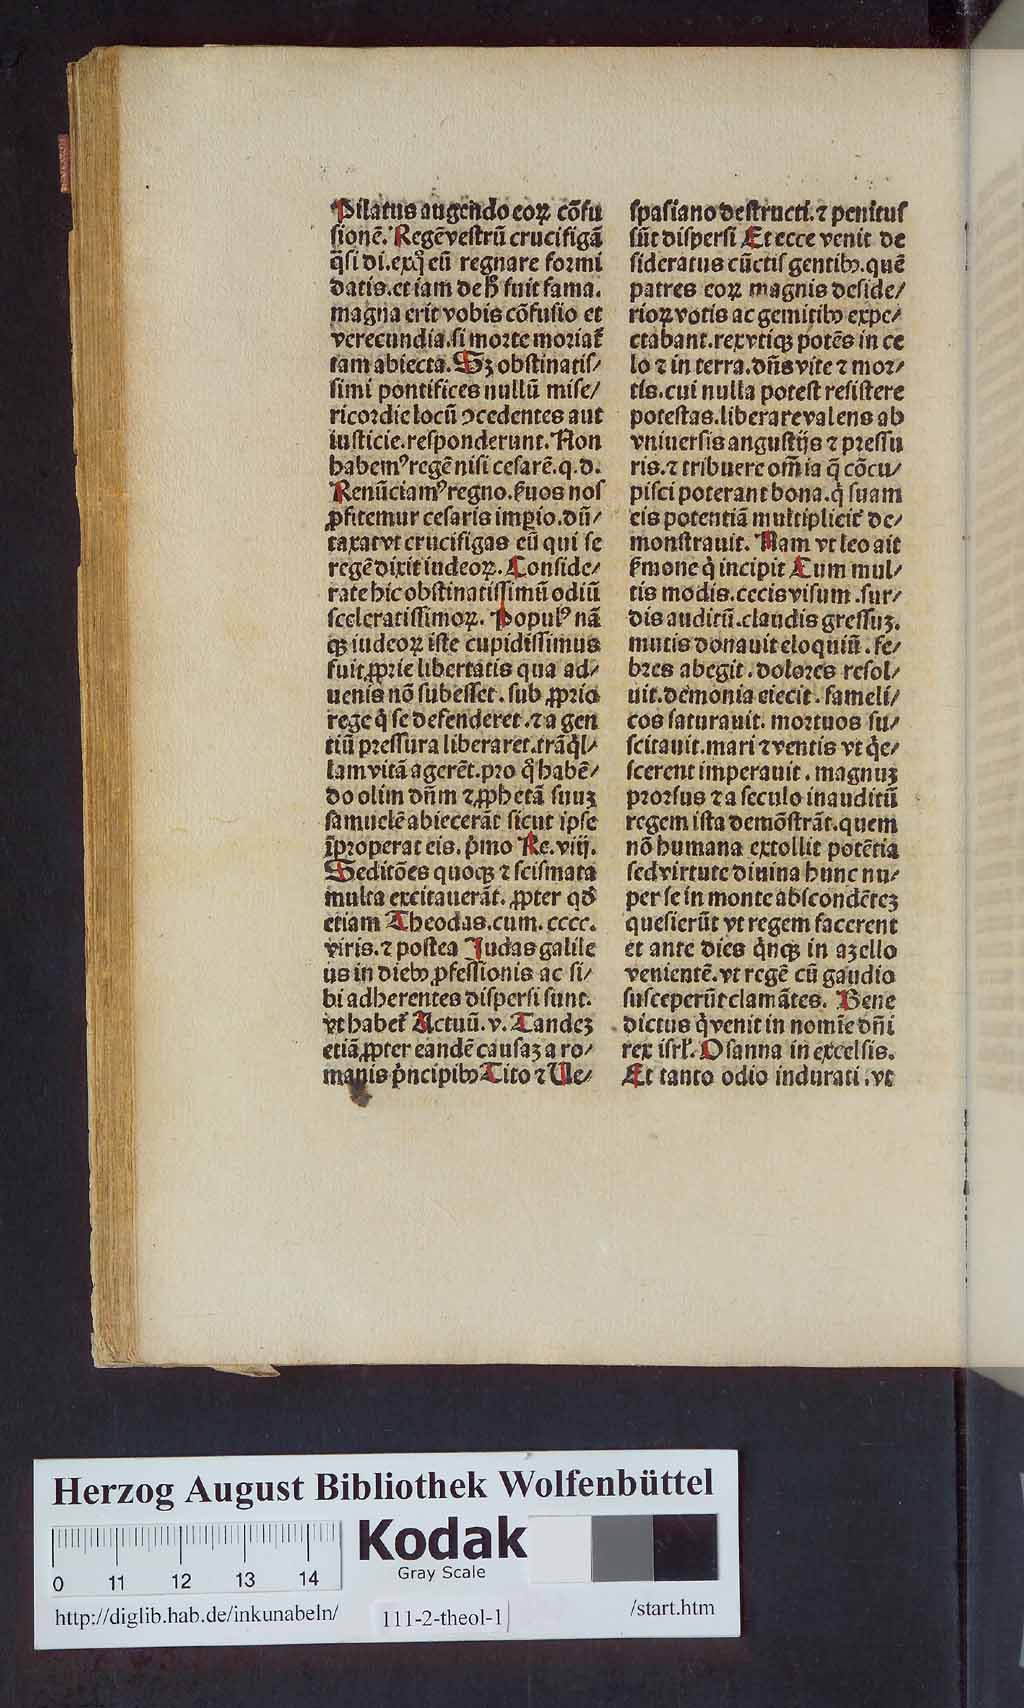 Pilatus augendo eoꝝ cõfu
sionẽ. Regẽ vestrũ crucifigã
q̃si di. ex quo eũ regnare formi
datis. et iam de hͦ fuit fama.
magna erit vobis cõfusio et
verecundia. si morte moriat᷑
tam abiecta. Sꝫ obstinatis⸗
simi pontifices nullũ mise⸗
ricordie locũ ꝯcedentes aut
iusticie. responderunt. Non
habemꝰ regẽ nisi cesarẽ. q. d.
Renũciamꝰ regno. ẜuos nos
ꝓfitemur cesaris imꝑio. dũ⸗
taxat vt crucifigas eũ qui se
regẽ dixit iudeoꝝ. Conside⸗
rate hic obstinatissimũ odiũ
sceleratissimoꝝ. Populꝰ nã
qꝫ iudeoꝝ iste cupidissimus
fuit ꝓprie libertatis qua ad⸗
uenis nõ subesset. sub ꝓprio
rege qͥ se defenderet. ⁊ a gen
tiũ pressura liberaret. trãqͥl⸗
lam vitã agerẽt. pro qͦ habẽ⸗
do olim dñm ⁊ ꝓphetã suuꝫ
samuelẽ abiecerãt sicut ipse
ĩproperat eis. pͥmo Re. viij.
Seditões quoqꝫ ⁊ scismata
multa excitauerãt. ꝓpter qd̕
etiam Theodas. cum. cccc.
viris. ⁊ postea Judas galile
us in diebꝫ ꝓfessionis ac si⸗
bi adherentes dispersi sunt.
vt habet᷑ Actuũ. v. Tandeꝫ
etiã ꝓpter eandẽ causaꝫ a ro⸗
manis pͥncipibꝫ Tito ⁊ Ve⸗
spasiano destructi. ⁊ penitus
sũt dispersi Et ecce venit de
sideratus cũctis gentibꝫ. quẽ
patres eoꝝ magnis deside⸗
rioꝝ votis ac gemitibꝫ expe⸗
ctabant. rex vtiqꝫ potẽs in ce
lo ⁊ in terra. dñs vite ⁊ mor⸗
tis. cui nulla potest resistere
potestas. liberare valens ab
vniuersis angustijs ⁊ pressu
ris. ⁊ tribuere om̃ia q̃ cõcu⸗
pisci poterant bona. qͥ suam
eis potentiã multiplicit᷑ de⸗
monstrauit. Nam vt leo ait
ẜmone qͥ incipit Cum mul⸗
tis modis. cecis visum. sur⸗
dis auditũ. claudis gressuꝫ.
mutis donauit eloquiũ. fe⸗
bres abegit. dolores resol⸗
uit. demonia eiecit. fameli⸗
cos saturauit. mortuos su⸗
scitauit. mari ⁊ ventis vt qͥe⸗
scerent imperauit. magnuꝫ
prorsus ⁊ a seculo inauditũ
regem ista demõstrãt. quem
nõ humana extollit potẽtia
sed virtute diuina hunc nu⸗
per se in monte abscondẽteꝫ
quesierũt vt regem facerent
et ante dies qͥnqꝫ in azello
venientẽ. vt regẽ cũ gaudio
susceperũt clamãtes. Bene
dictus qͥ venit in nomĩe dñi
rex isrl̕. Osanna in excelsis.
Et tanto odio indurati. vt
Herzog August Bibliothek Wolfenbüttel
Kodak
Gray Scale
0 11 12 13 14
http://diglib.hab.de/inkunabeln/ 111-2-theol-1 /start.htm